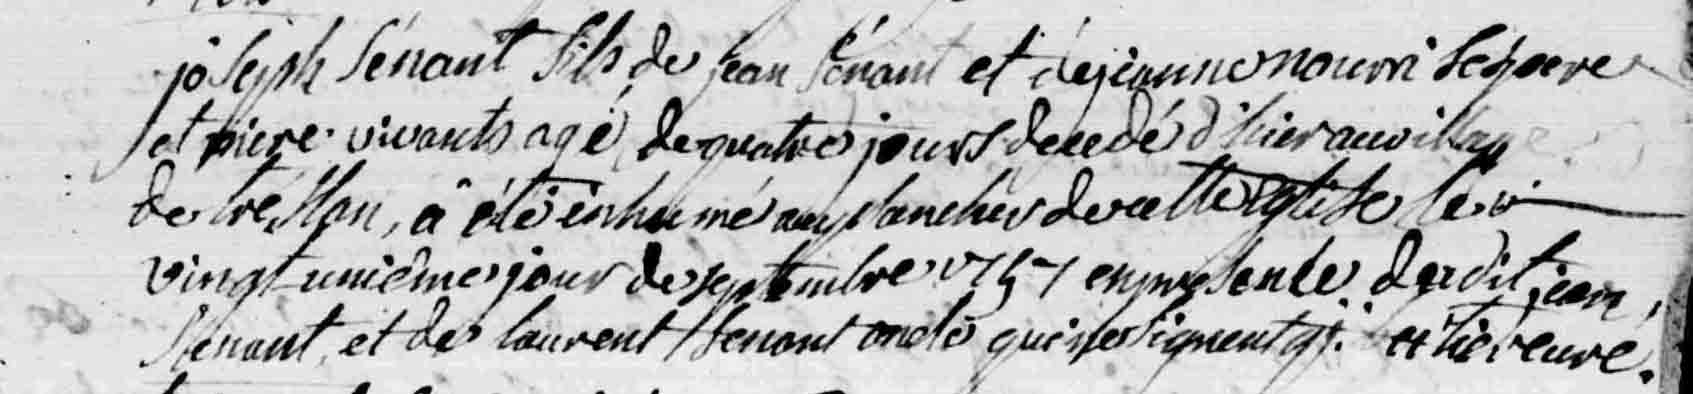 joseph Sénant fils de jean Sénant et de jeanne nourri Ses pere
et mere vivants agé de quatre jours decedé d'hier au village
de à été inhumé au plancher de cette Eglise le
vingt-unième jour de septembre 1757 en presence dudit jean
Senant et de laurent Senant oncle qui ne signent curé.